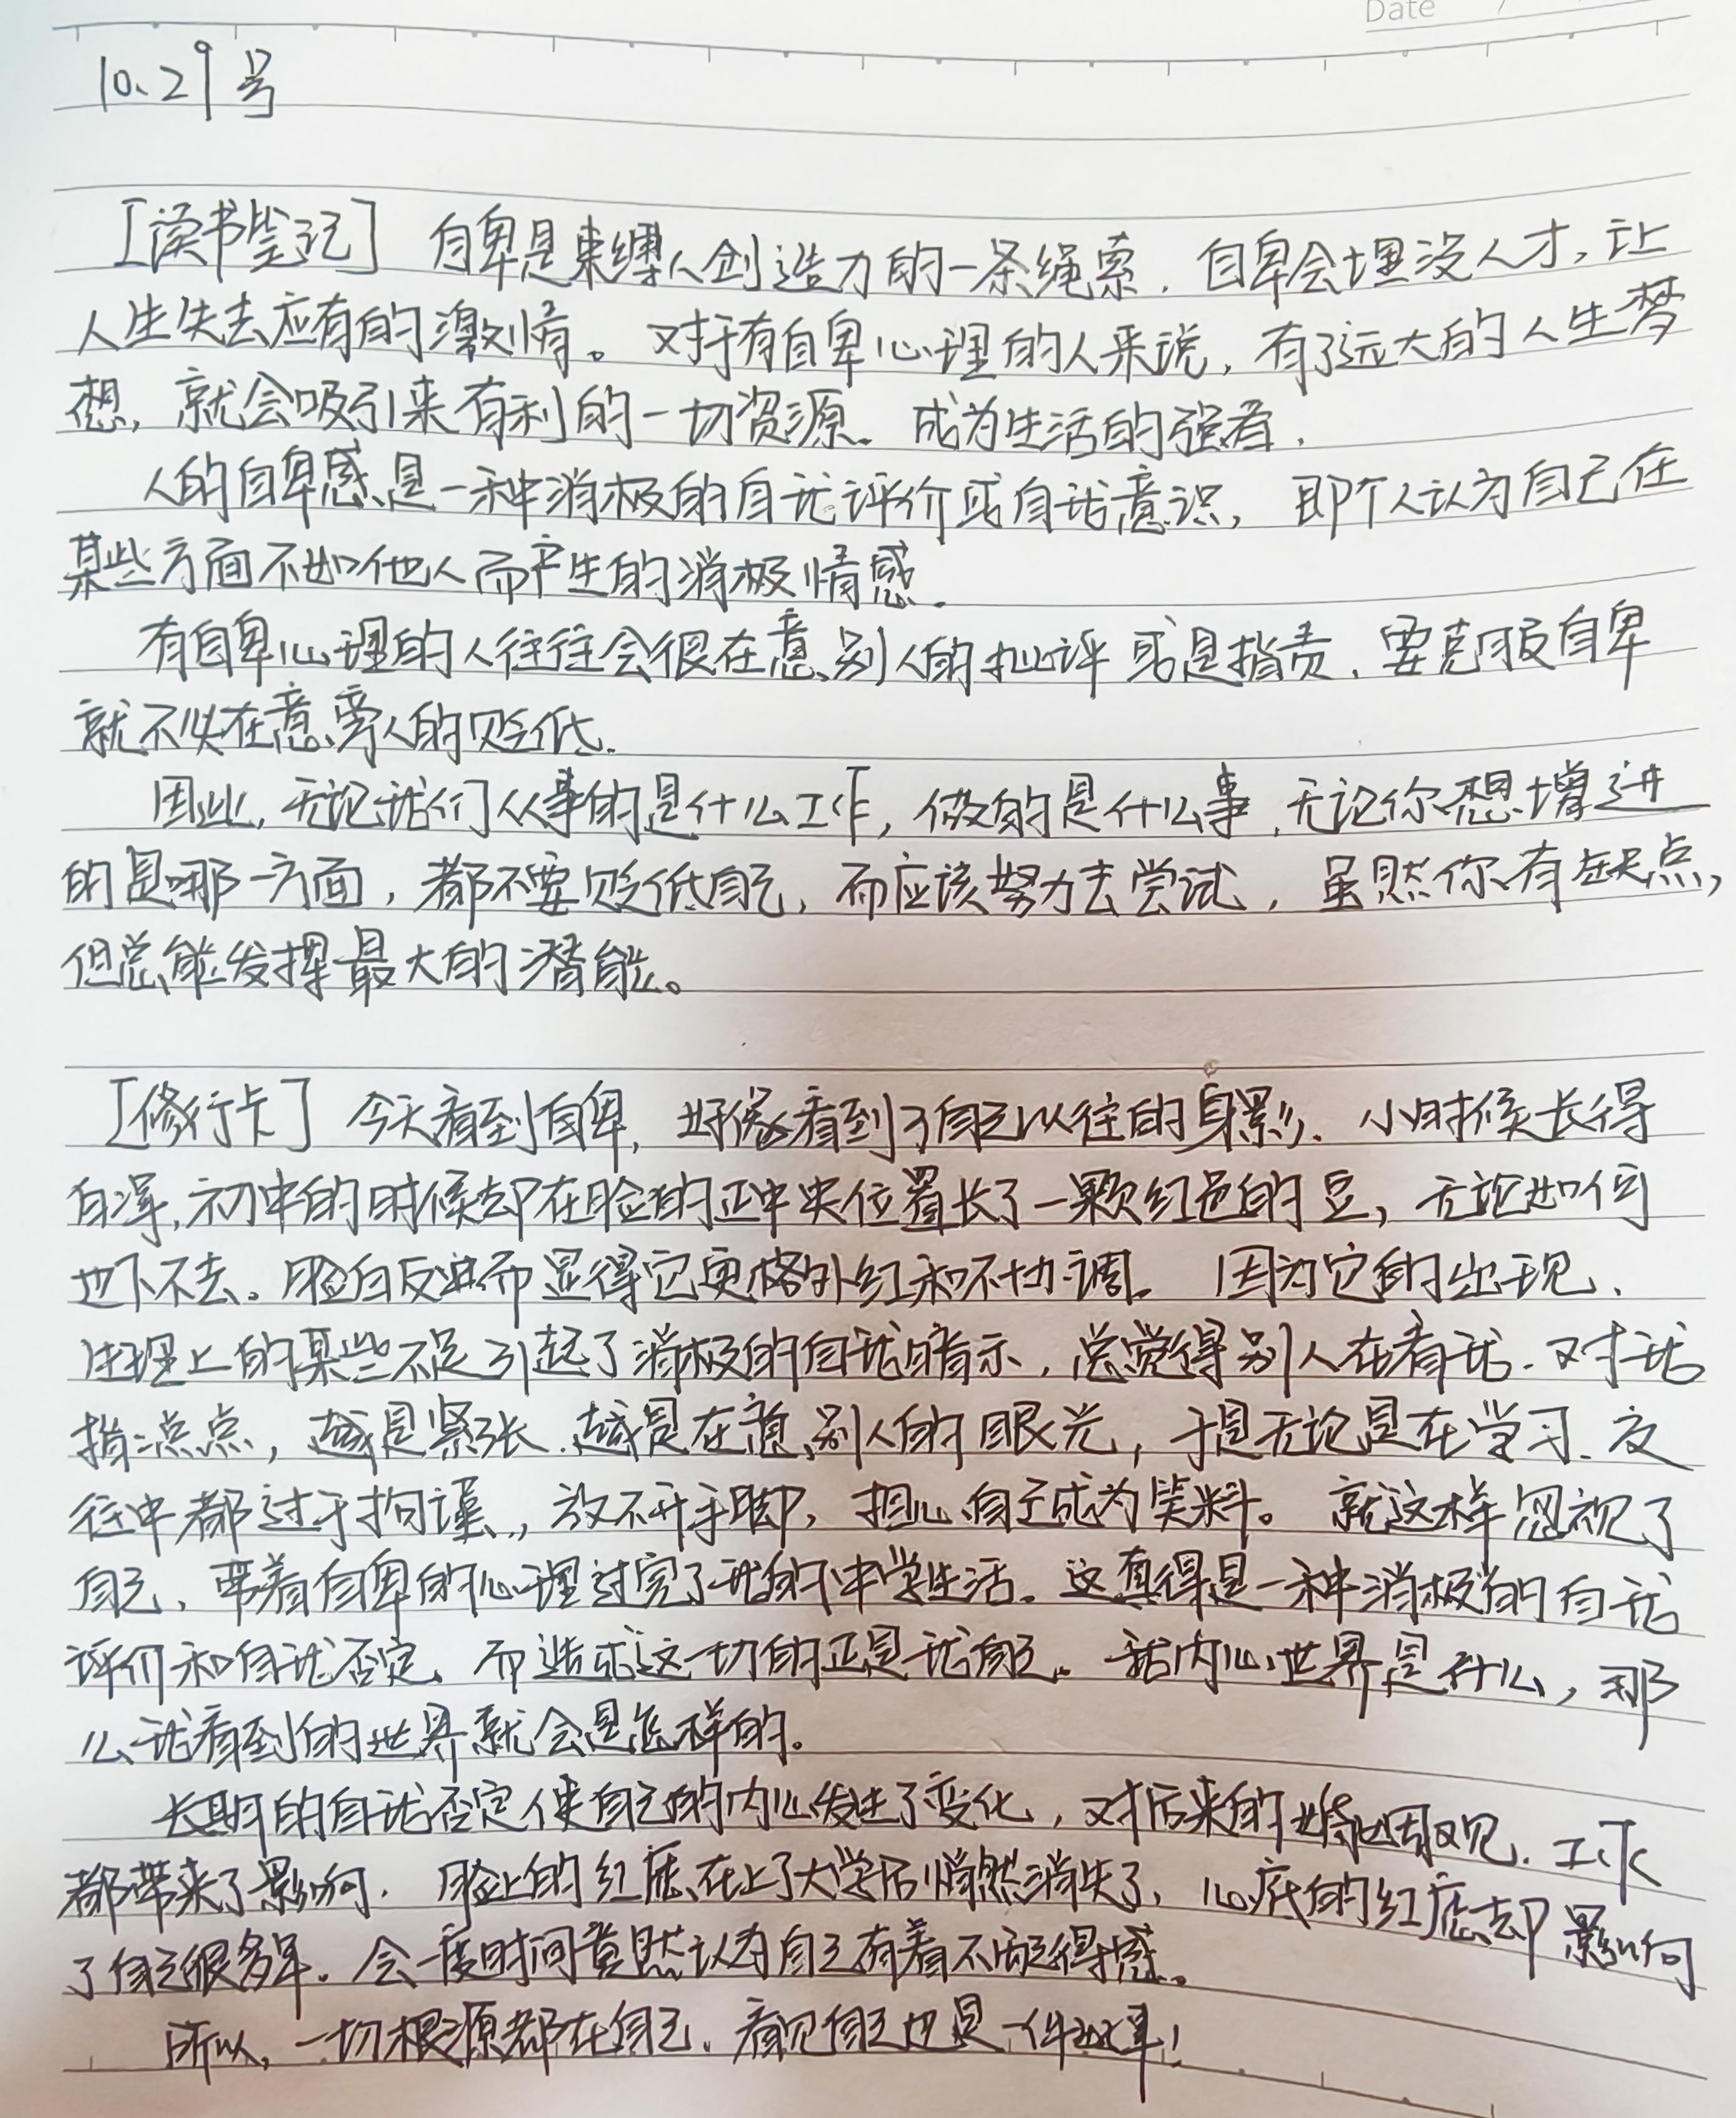 Date /
10.29号
[读书笔记] 自卑是束缚人创造力的一条绳索.自卑会埋没人才,让
人生失去应有的激情。对于有自卑心理的人来说,有了远大的人生梦
想,就会吸引来有利的一切资源。成为生活的强者.
人的自卑感是一种消极的自我评价或自我意识,即个人认为自己在
某些方面不如他人而产生的消极情感.
有自卑心理的人往往会很在意别人的批评或是指责.要克服自卑
就不必在意旁人的贬低.
因此,无论我们从事的是什么工作,做的是什么事,无论你想增进
的是哪一方面,都不要贬低自己,而应该努力去尝试,虽然你有缺点,
但总能发挥最大的潜能。
[修行卡] 今天看到自卑,好像看到了自己以往的身影.小时候长得
白净,初中的时候却在脸的正中央位置长了一颗红色的豆,无论如何
也下不去。脸白反进而显得它更格外红和不协调。因为它的出现、
生理上的某些不足引起了消极的自我暗示,总觉得别人在看我.对我
指点点,越是紧张.越是在意别人的眼光,于是无论是在学习、交
往中都过于拘谨,,放不开手脚,担心自己成为笑料。就这样忽视了
自己、带着自卑的心理过完了我的中学生活。这真得是一种消极的自我
评价和自我否定、而造成这一切的正是我自己。我内心世界是什么,那
么我看到的世界就会是怎样的。
长期的自我否定使自己的内心发生了变化,对后来的婚姻观.工作
都带来了影响.脸上的红痘在上了大学后悄然消失了,心底的红痘却影响
了自己很多年。会一度时间竟然认为自己有着不配得感。
所以,一切根源都在自己.看见自己也是一件!